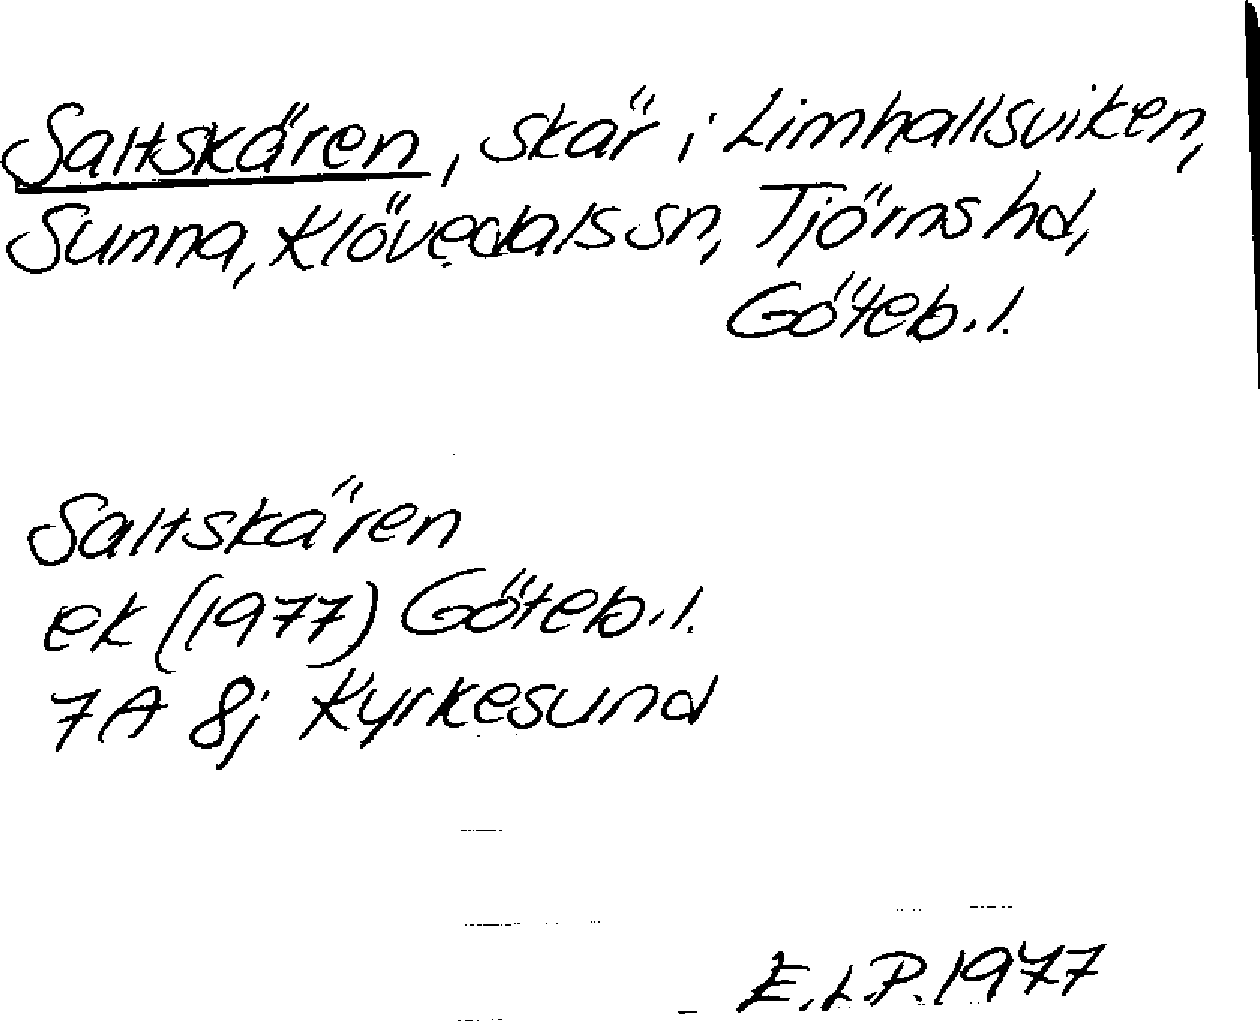 Saltskären, skär i Limhallsviken,
Sunna, Klövedals sn, Tjörns hd,
Göteb. l.
Saltskären
ek (1977) Göteb. l.
7A 8j Kyrkesund
E.L.P. 1977